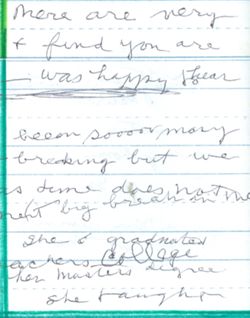 There are very
+ find you are
was happy to hear
been sooooo many
breaking but we
as time does not
big break in
She graduated
eachers College
her masters degree
she taught